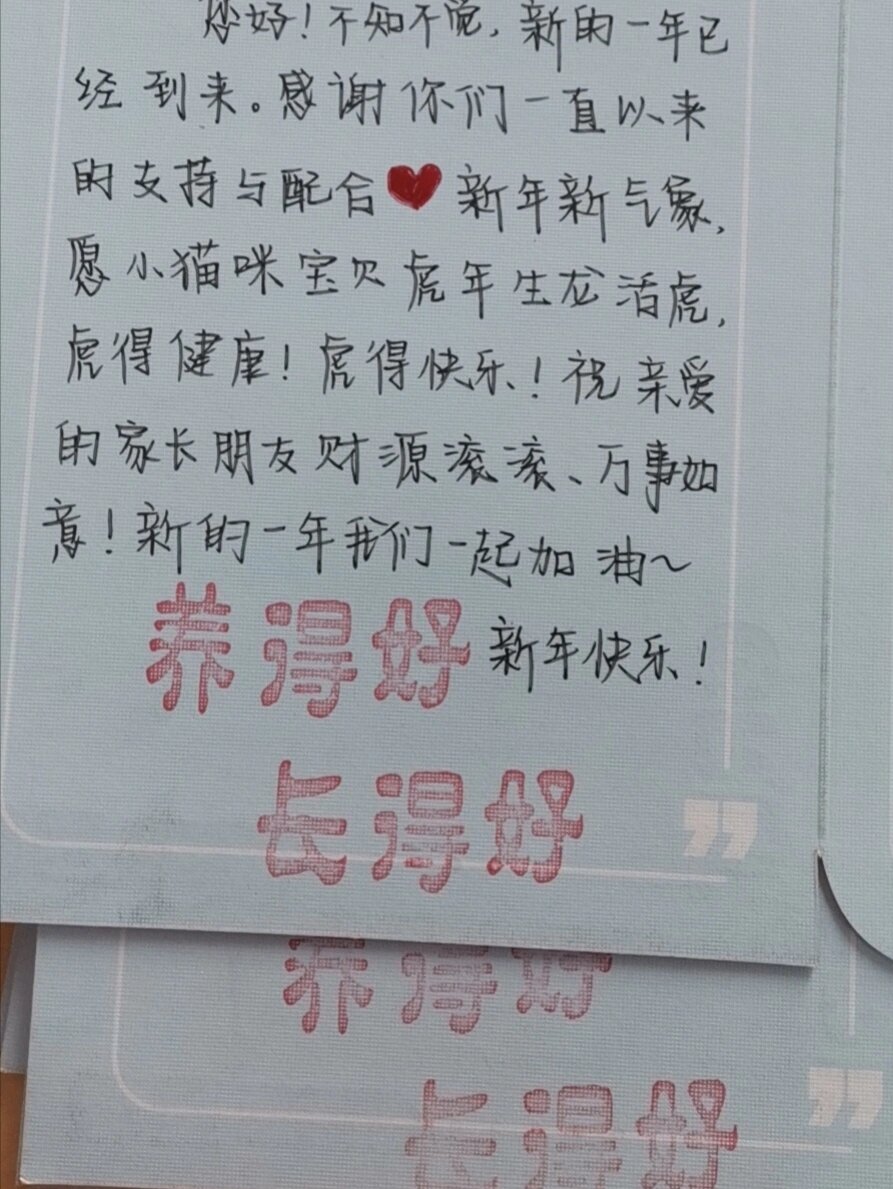 您好！不知不觉，新的一年已
经到来。感谢你们一直以来
的支持与配合❤新年新气象，
愿小猫咪宝贝虎年生龙活虎，
虎得健康！虎得快乐！祝亲爱
的家长朋友财源滚滚、万事如
意！新的一年我们一起加油~
新年快乐！
养得好
长得好
养得好
长得好